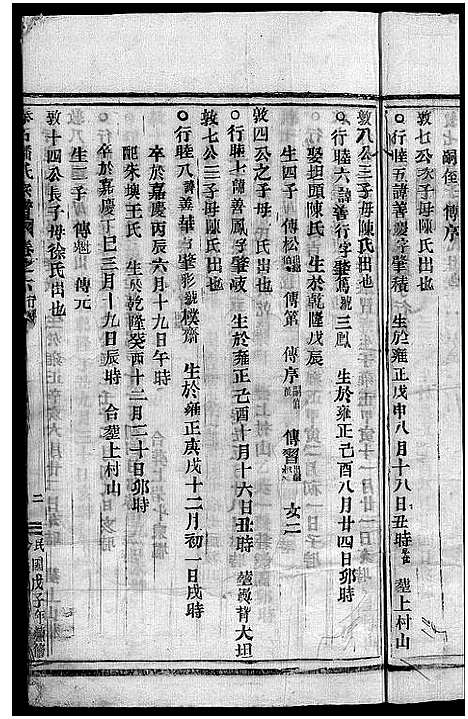 嗣侄 傳序
敦七公次子母陳氏出也
○行睦五諱善慶字肇積 生於雍正戊申八月十八日丑時 塟上村山
敦八公三子母陳氏出也
○行睦六諱善行字肇 號三鳳 生於雍正己酉八月廿四日卯時
娶坦頭陳氏 生於乾隆戊辰
生四子 傳松 傳第 傳序 傳習 女二
敦四公之子母 氏出也
○行睦七諱善鳳字肇岐 生於雍正己酉十月十六日丑時 塟 背大坦
敦七公三子母陳氏出也
○行睦八諱善華字肇彩號樸齋 生於雍正庚戌十二月初一日戌時
卒於嘉慶丙辰六月十九日午時
配朱墺王氏 生於乾隆癸酉十二月二十日卯時
卒於嘉慶丁巳三月十九日辰時 合塟上村山
生二子 傳 傳元
敦十四公長子母徐氏出也
氏宗譜 卷之六行傳 二 民國戊子年續修